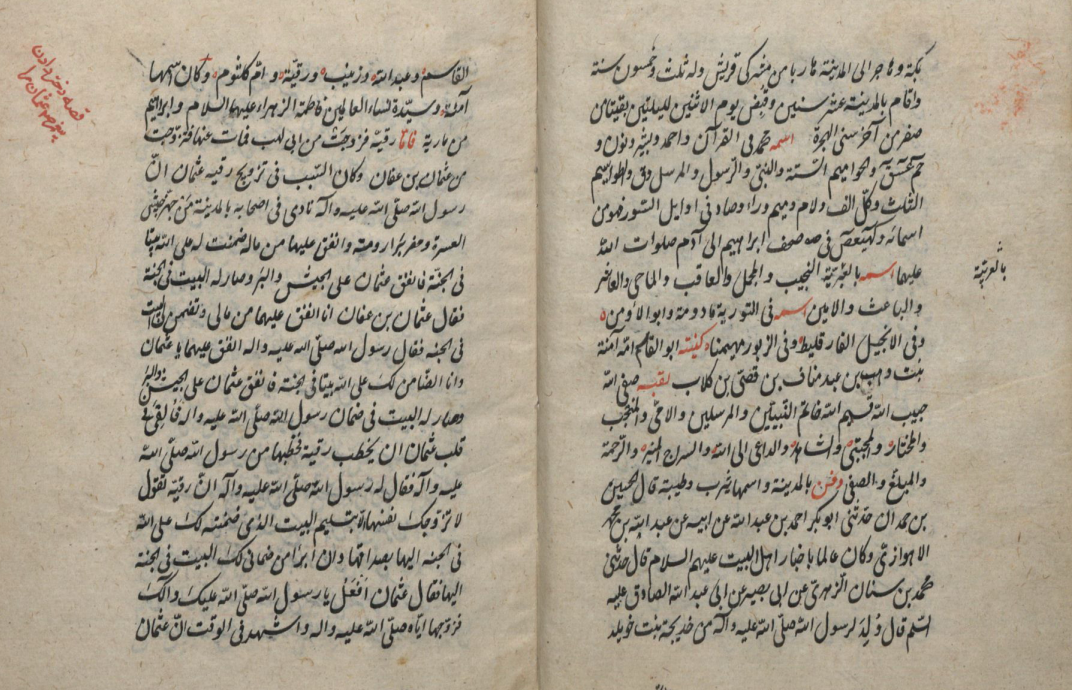 بمكة وهاجر الى المدينة هاربا من مشركي قريش وله ثلث وخمسون سنة
واقام بالمدينة عشر سنين وقبض يوم الاثنين لليلتين بقيتا من
صفر من آخر سنى الهجرة اسمه محمد في القرآن واحمد ونون و
حم عسق والحواميم الستة والنبي والرسول والمرسل وق والطواسيم
الثلث وكل الف ولام وميم ورا وصاد في اوايل السور فهو من
اسمائه وكهيعص في صحف ابراهيم الى آدم صلوات الله
عليها اسمه بالعربية النجيب و والعاقب والماحي والحاشر
والباعث والامين اسمه في التورية وابو الارامل
وفي الانجيل الفارقليط وفي الزبور مهيمنا كنيته ابو القاسم امه آمنة
بنت وهب بن عبد مناف بن قصي بن كلاب لقبه صفي الله
حبيب الله قسيم الله خاتم النبيين والمرسلين والامي والمنتجب
والمختار والمجتبى والشاهد والداعي الى الله والسراج المنير والرحمة
والمبلغ والصفي دفن بالمدينة واسمها يثرب وطيبة قال الحسين
بن حمدان حدثني ابو بكر احمد بن عبد الله عن ابيه عن عبد الله بن محمد
الاهوازي وكان عالما باخبار اهل البيت عليهم السلام قال حدثني
محمد بن سنان الزهري عن ابي بصير عن ابي عبد الله الصادق عليه
السلم قال ولد لرسول الله صلى الله عليه وآله من خديجة بنت خويلد
بالعربية
القاسم وعبد الله وزينب ورقية وام كلثوم وكان اسمها
آمنة وسيدة نساء العالمين فاطمة الزهراء عليها السلام وابراهيم
من مارية فاما رقية فزوجت من ابي لهب فمات عنها فتزوجت
من عثمان بن عفان وكان السبب في تزويج رقية عثمان ان
رسول الله صلى الله عليه وآله نادى في اصحابه بالمدينة من جهز جيش
العسرة وحفر بئر رومة وانفق عليهما من ماله ضمنت له على الله بيتا
في الجنة فانفق عثمان على الجيش والبئر وصار له البيت في الجنة
فقال عثمان بن عفان انا انفق عليهما من مالي وتضمن لي البيت
في الجنة فقال رسول الله صلى الله عليه واله انفق عليهما يا عثمان
وانا الضامن لك على الله بيتا في الجنة فانفق عثمان على الجيش والبئر
وصار له البيت في ضمان رسول الله صلى الله عليه واله فالقي في
قلب عثمان ان يخطب رقية فخطبها من رسول الله صلى الله
عليه وآله فقال له رسول الله صلى الله عليه وآله ان رقية تقول
لا تزوجك نفسها الا بتسليم البيت الذي ضمنته لك على الله
في الجنة اليها بصداقها واني ابرأ من ضماني لك البيت في الجنة
اليها فقال عثمان افعل يا رسول الله صلى الله عليك وآلك
فزوجها اياه صلى الله عليه واله واشهد في الوقت ان عثمان
قصه دختر دادن
پيغمبر بعثمان